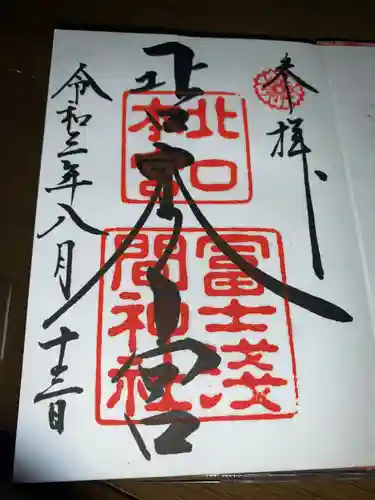 参拝
北口本宮
北口
本宮
冨士淺
間神社
令和三年八月十三日